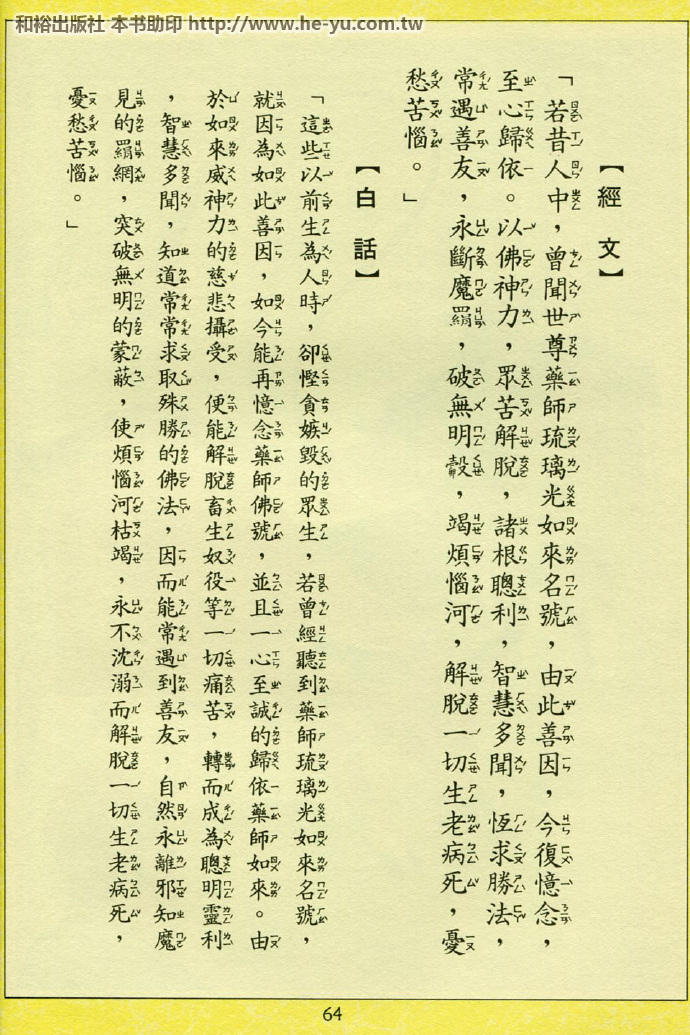 和裕出版社 本书助印 http://www.he-yu.com.tw
【經文】
「若昔人中，曾聞世尊藥師琉璃光如來名號，由此善因，今復憶念，
至心歸依。以佛神力，眾苦解脫，諸根聰利，智慧多聞，恆求勝法，
常遇善友，永斷魔羂，破無明㲉，竭煩惱河，解脫一切生老病死，憂
愁苦惱。」
【白話】
「這些以前生為人時，卻慳貪嫉毀的眾生，若曾經聽到藥師琉璃光如來名號，
就因為如此善因，如今能再憶念藥師佛號，並且一心至誠的歸依藥師如來。由
於如來威神力的慈悲攝受，便能解脫畜生奴役等一切痛苦，轉而成為聰明靈利
，智慧多聞，知道常常求取殊勝的佛法，因而能常遇到善友，自然永離邪知魔
見的羂網，突破無明的蒙蔽，使煩惱河枯竭，永不沈溺而解脫一切生老病死，
憂愁苦惱。」
64